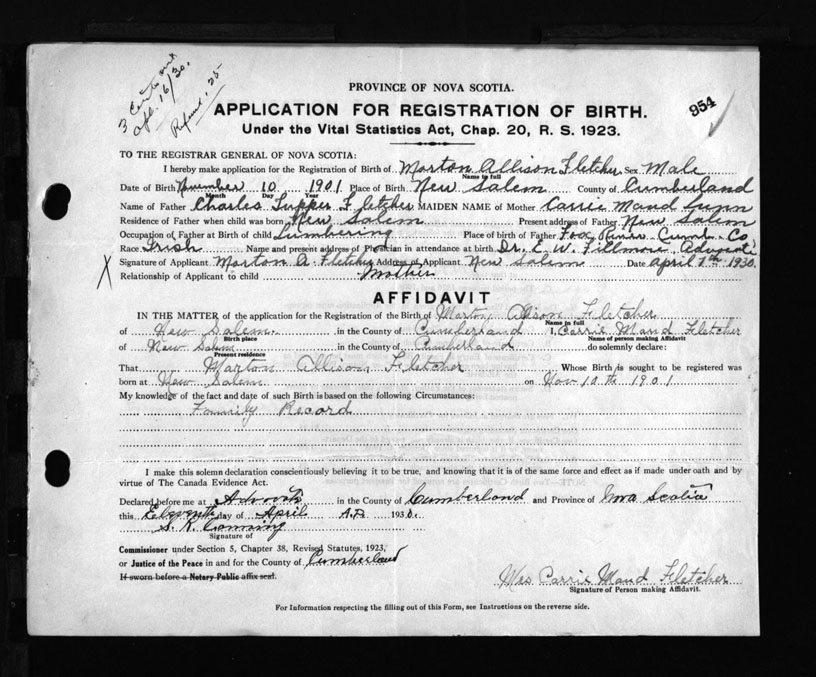 3 Certs sent
Apl. 16/30.
Refund .25
954
PROVINCE OF NOVA SCOTIA.
APPLICATION FOR REGISTRATION OF BIRTH.
Under the Vital Statistics Act, Chap. 20, R. S. 1923.
TO THE REGISTRAR GENERAL OF NOVA SCOTIA:
I hereby make application for the Registration of Birth of Morton Allison Fletcher Sex Male
Name in full
Date of Birth November 10 1901 Place of Birth New Salem County of Cumberland
Month Day Year
Name of Father Charles Tupper Fletcher MAIDEN NAME of Mother Carrie Maud
Residence of Father when child was born New Salem Present address of Father New Salem
Occupation of Father at Birth of child Lumbering Place of birth of Father Fox River Cumb. Co
Race Irish Name and present address of Physician in attendance at birth Dr. E. W. Fillmore Advocate
Signature of Applicant Morton A. Fletcher Address of Applicant New Salem Date April 7th 1930.
Relationship of Applicant to child Mother
X
AFFIDAVIT
IN THE MATTER of the application for the Registration of the Birth of Morton Allison Fletcher
Name in full
of New Salem in the County of Cumberland I, Carrie Maud Fletcher
Birth place Name of person making Affidavit
of New Salem in the County of Cumberland do solemnly declare:
Present residence
That Morton Allison Fletcher Whose Birth is sought to be registered was
born at New Salem on Nov 10th 1901
My knowledge of the fact and date of such Birth is based on the following Circumstances:
Family Record
I make this solemn declaration conscientiously believing it to be true, and knowing that it is of the same force and effect as if made under oath and by
virtue of The Canada Evidence Act.
Declared before me at Advocate in the County of Cumberland and Province of Nova Scotia
this Eleventh day of April A.D. 1930.
S. K. Canning
Signature of
Commissioner under Section 5, Chapter 38, Revised Statutes, 1923,
or Justice of the Peace in and for the County of Cumberland
If sworn before a Notary Public affix seal.
Mrs Carrie Maud Fletcher
Signature of Person making Affidavit.
For Information respecting the filling out of this Form, see Instructions on the reverse side.